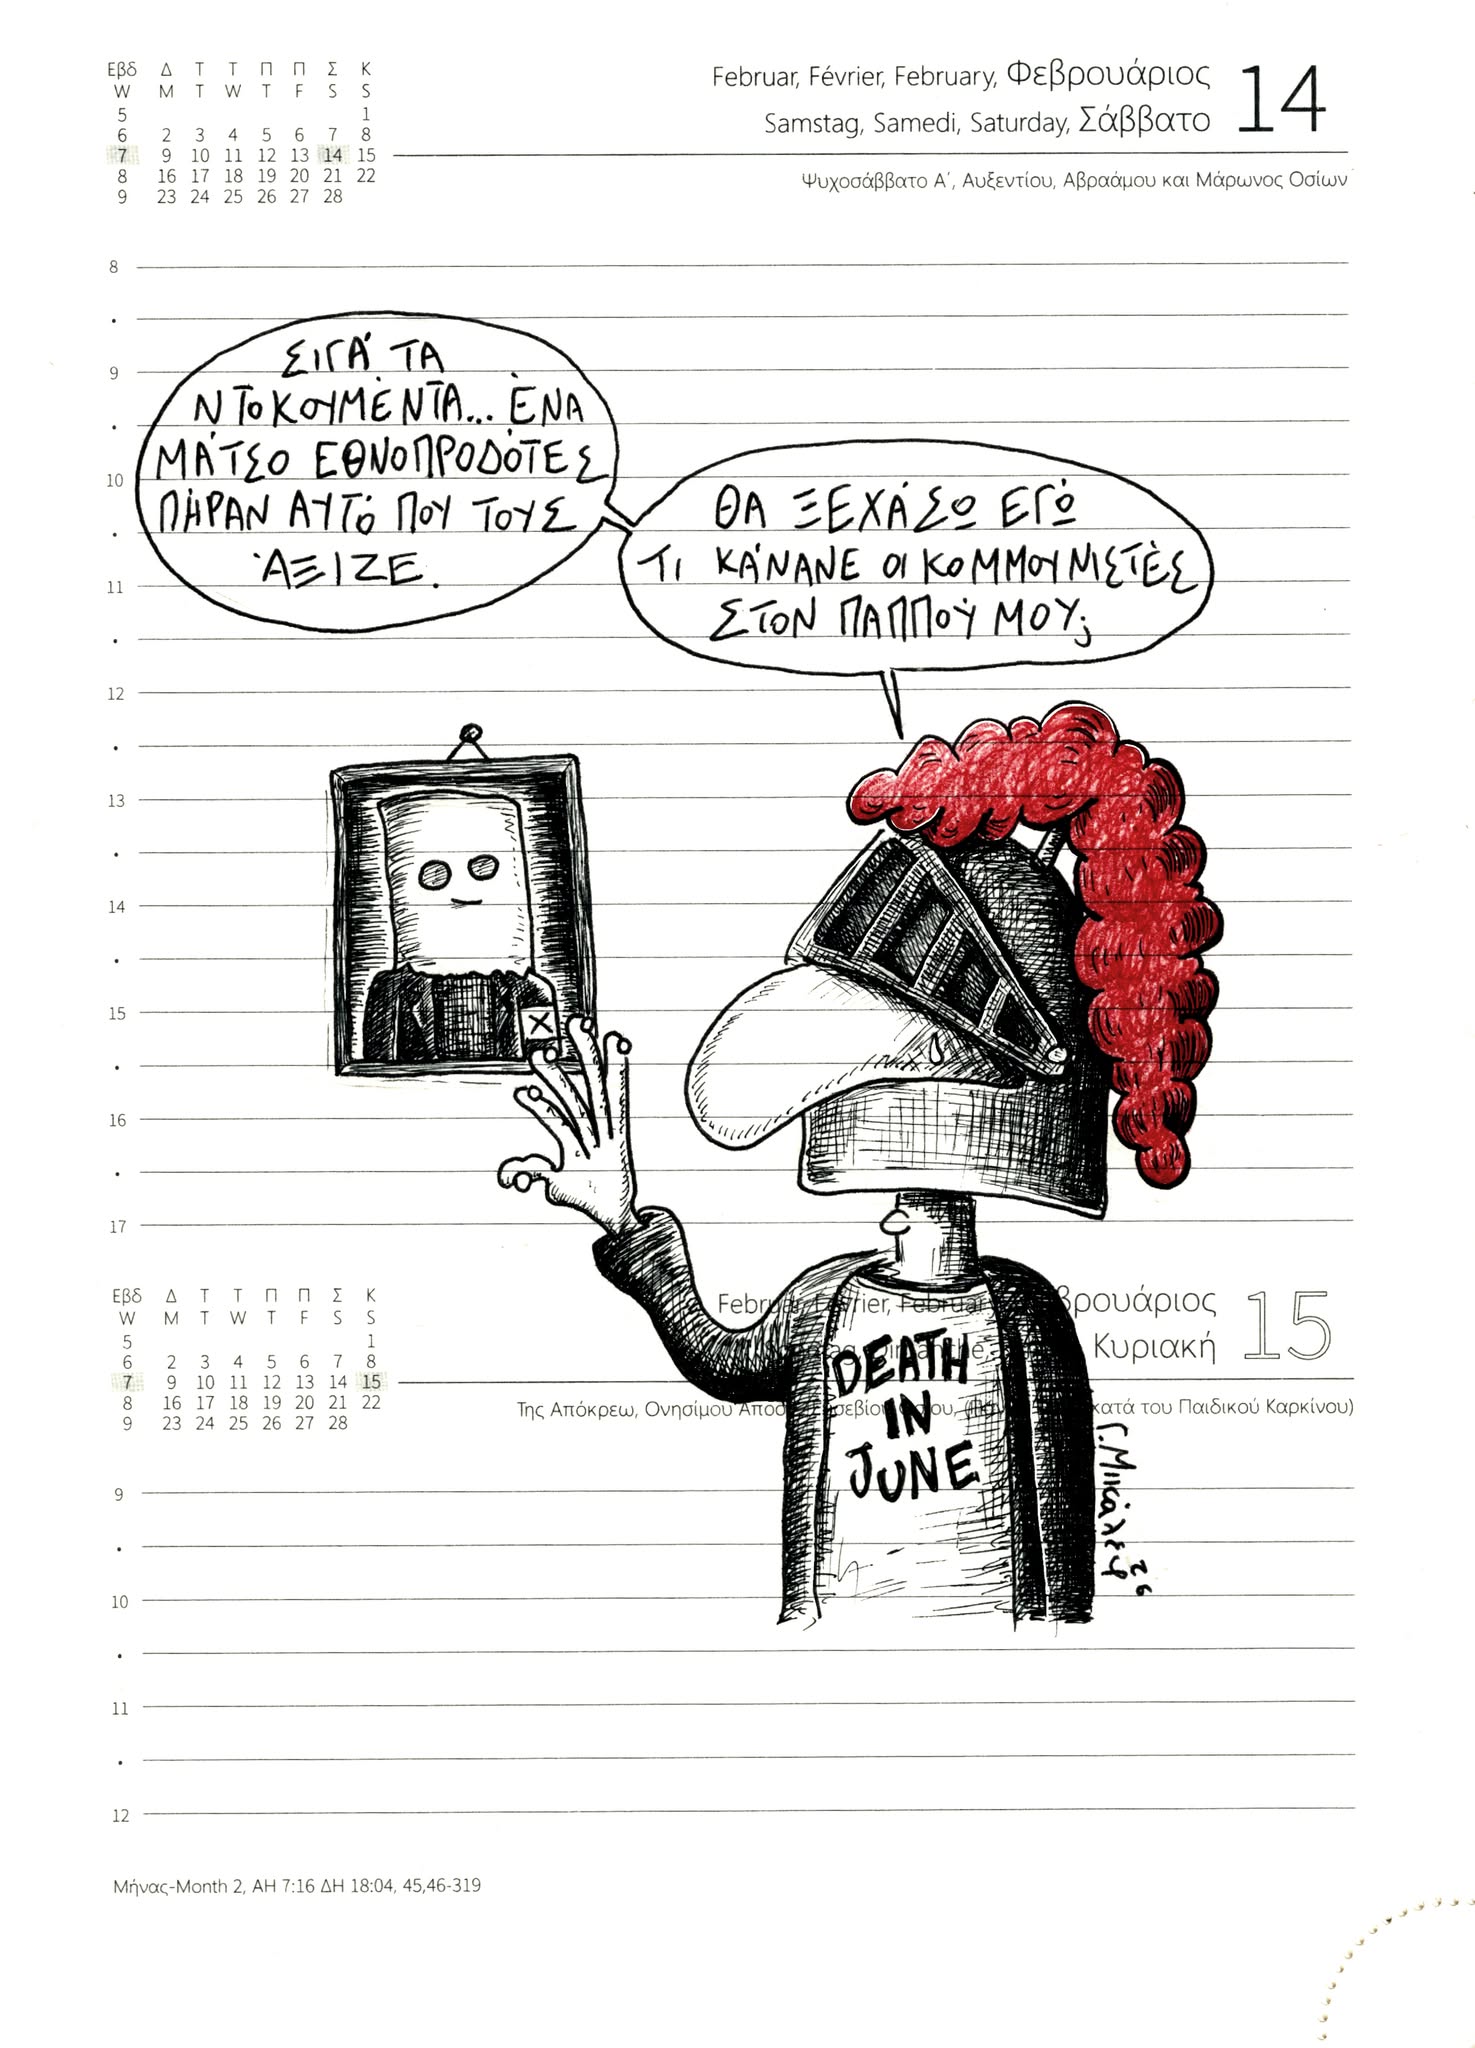 Εβδ Δ Τ Τ Π Π Σ Κ
W M T W T F S S
5 1
6 2 3 4 5 6 7 8
7 9 10 11 12 13 14 15
8 16 17 18 19 20 21 22
9 23 24 25 26 27 28
Februar, Février, February, Φεβρουάριος 14
Samstag, Samedi, Saturday, Σάββατο
Ψυχοσάββατο Α΄, Αυξεντίου, Αβραάμου και Μάρωνος Οσίων
8
9
10
11
12
13
14
15
16
17
ΣΙΓΆ ΤΑ
ΝΤΟΚΟΥΜΈΝΤΑ... ΈΝΑ
ΜΆΤΣΟ ΕΘΝΟΠΡΟΔΌΤΕΣ
ΠΉΡΑΝ ΑΥΤΌ ΠΟΥ ΤΟΥΣ
ΆΞΙΖΕ.
ΘΑ ΞΕΧΆΣΩ ΕΓΏ
ΤΙ ΚΆΝΑΝΕ ΟΙ ΚΟΜΜΟΥΝΙΣΤΈΣ
ΣΤΟΝ ΠΑΠΠΟΎ ΜΟΥ;
X
DEATH
IN
JUNE
Γ. Μικάλεφ
26
Εβδ Δ Τ Τ Π Π Σ Κ
W M T W T F S S
5 1
6 2 3 4 5 6 7 8
7 9 10 11 12 13 14 15
8 16 17 18 19 20 21 22
9 23 24 25 26 27 28
Februar, Février, February, Φεβρουάριος 15
Κυριακή
Της Απόκρεω, Ονησίμου κατά του Παιδικού Καρκίνου)
9
10
11
12
Μήνας-Month 2, ΑΗ 7:16 ΔΗ 18:04, 45,46-319